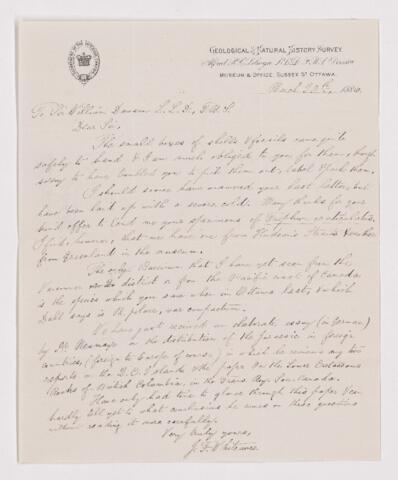 GEOLOGICAL & NATURAL HISTORY SURVEY
Alfred R. C. Selwyn, L.L.D. F.R.S. Director
MUSEUM & OFFICE, SUSSEX ST OTTAWA.
March 1886.
To Sir William Dawson L.L.D., F.R.S.
Dear Sir,
The small boxes of shells & fossils came quite
safely to hand & I am much obliged to you for them, though
sorry to have troubled you to pick them out, label & pack them.
I should sooner have answered your last letter, but
have been laid up with a severe cold. Many thanks for your
kind offer to lend me your specimens of
I find, however, that we have one from Hudson's Straits & another
from Greenland in the museum.
The only Buccinum that I have yet seen from the
Vancouver district or from the Pacific coast of Canada
is the species which you saw when in Ottawa last, & which
Dall says is B. plectrum, var.
We have just received an elaborate essay (in German)
by Dr. Neumayr on the distribution of the Jurassic in foreign
countries, (foreign to Europe of course) in which he reviews my two
reports on the Q. C. Islands & the paper on the Lower Cretaceous
Rocks of British Columbia, in the Trans. Roy. Soc. Canada.
Have only had time to glance through this paper & can
hardly tell yet to what conclusions he comes on these questions
without reading it more carefully.
Very truly yours,
J. F. Whiteaves